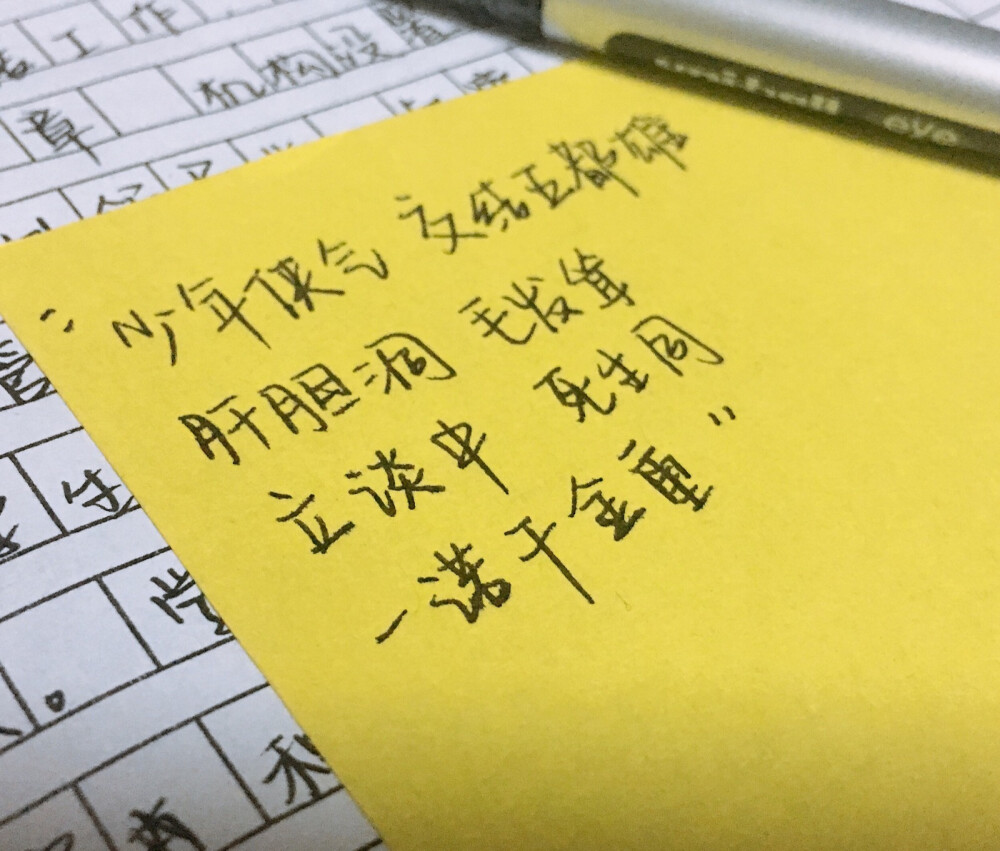 工作
章 机构设置
“少年侠气 交结五都雄
肝胆洞 毛发耸
立谈中 死生同
一诺千金重”
管
生
学
。
和
eye